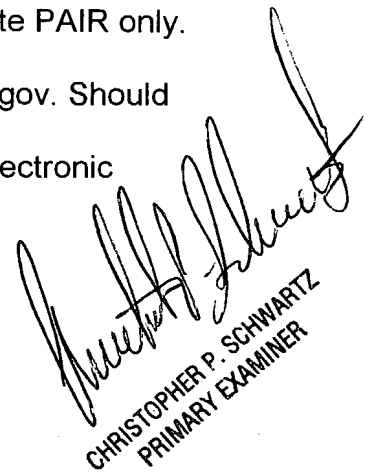 te PAIR only.
gov. Should
ectronic
CHRISTOPHER P. SCHWARTZ
PRIMARY EXAMINER